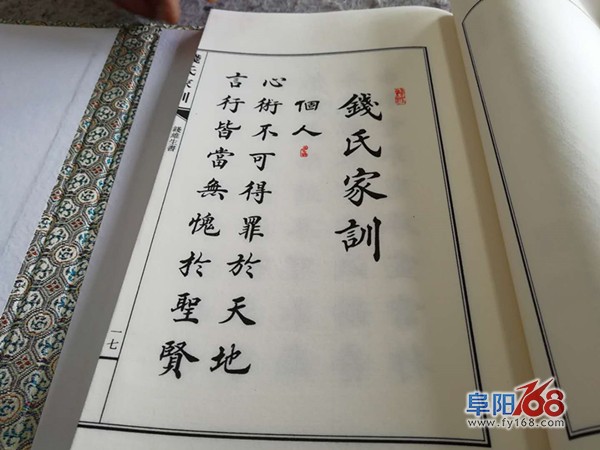 錢氏家訓
個人
心術不可得罪於天地
言行皆當無愧於聖賢
錢氏家訓
錢維生書
一七
阜阳168
www.fy168.com